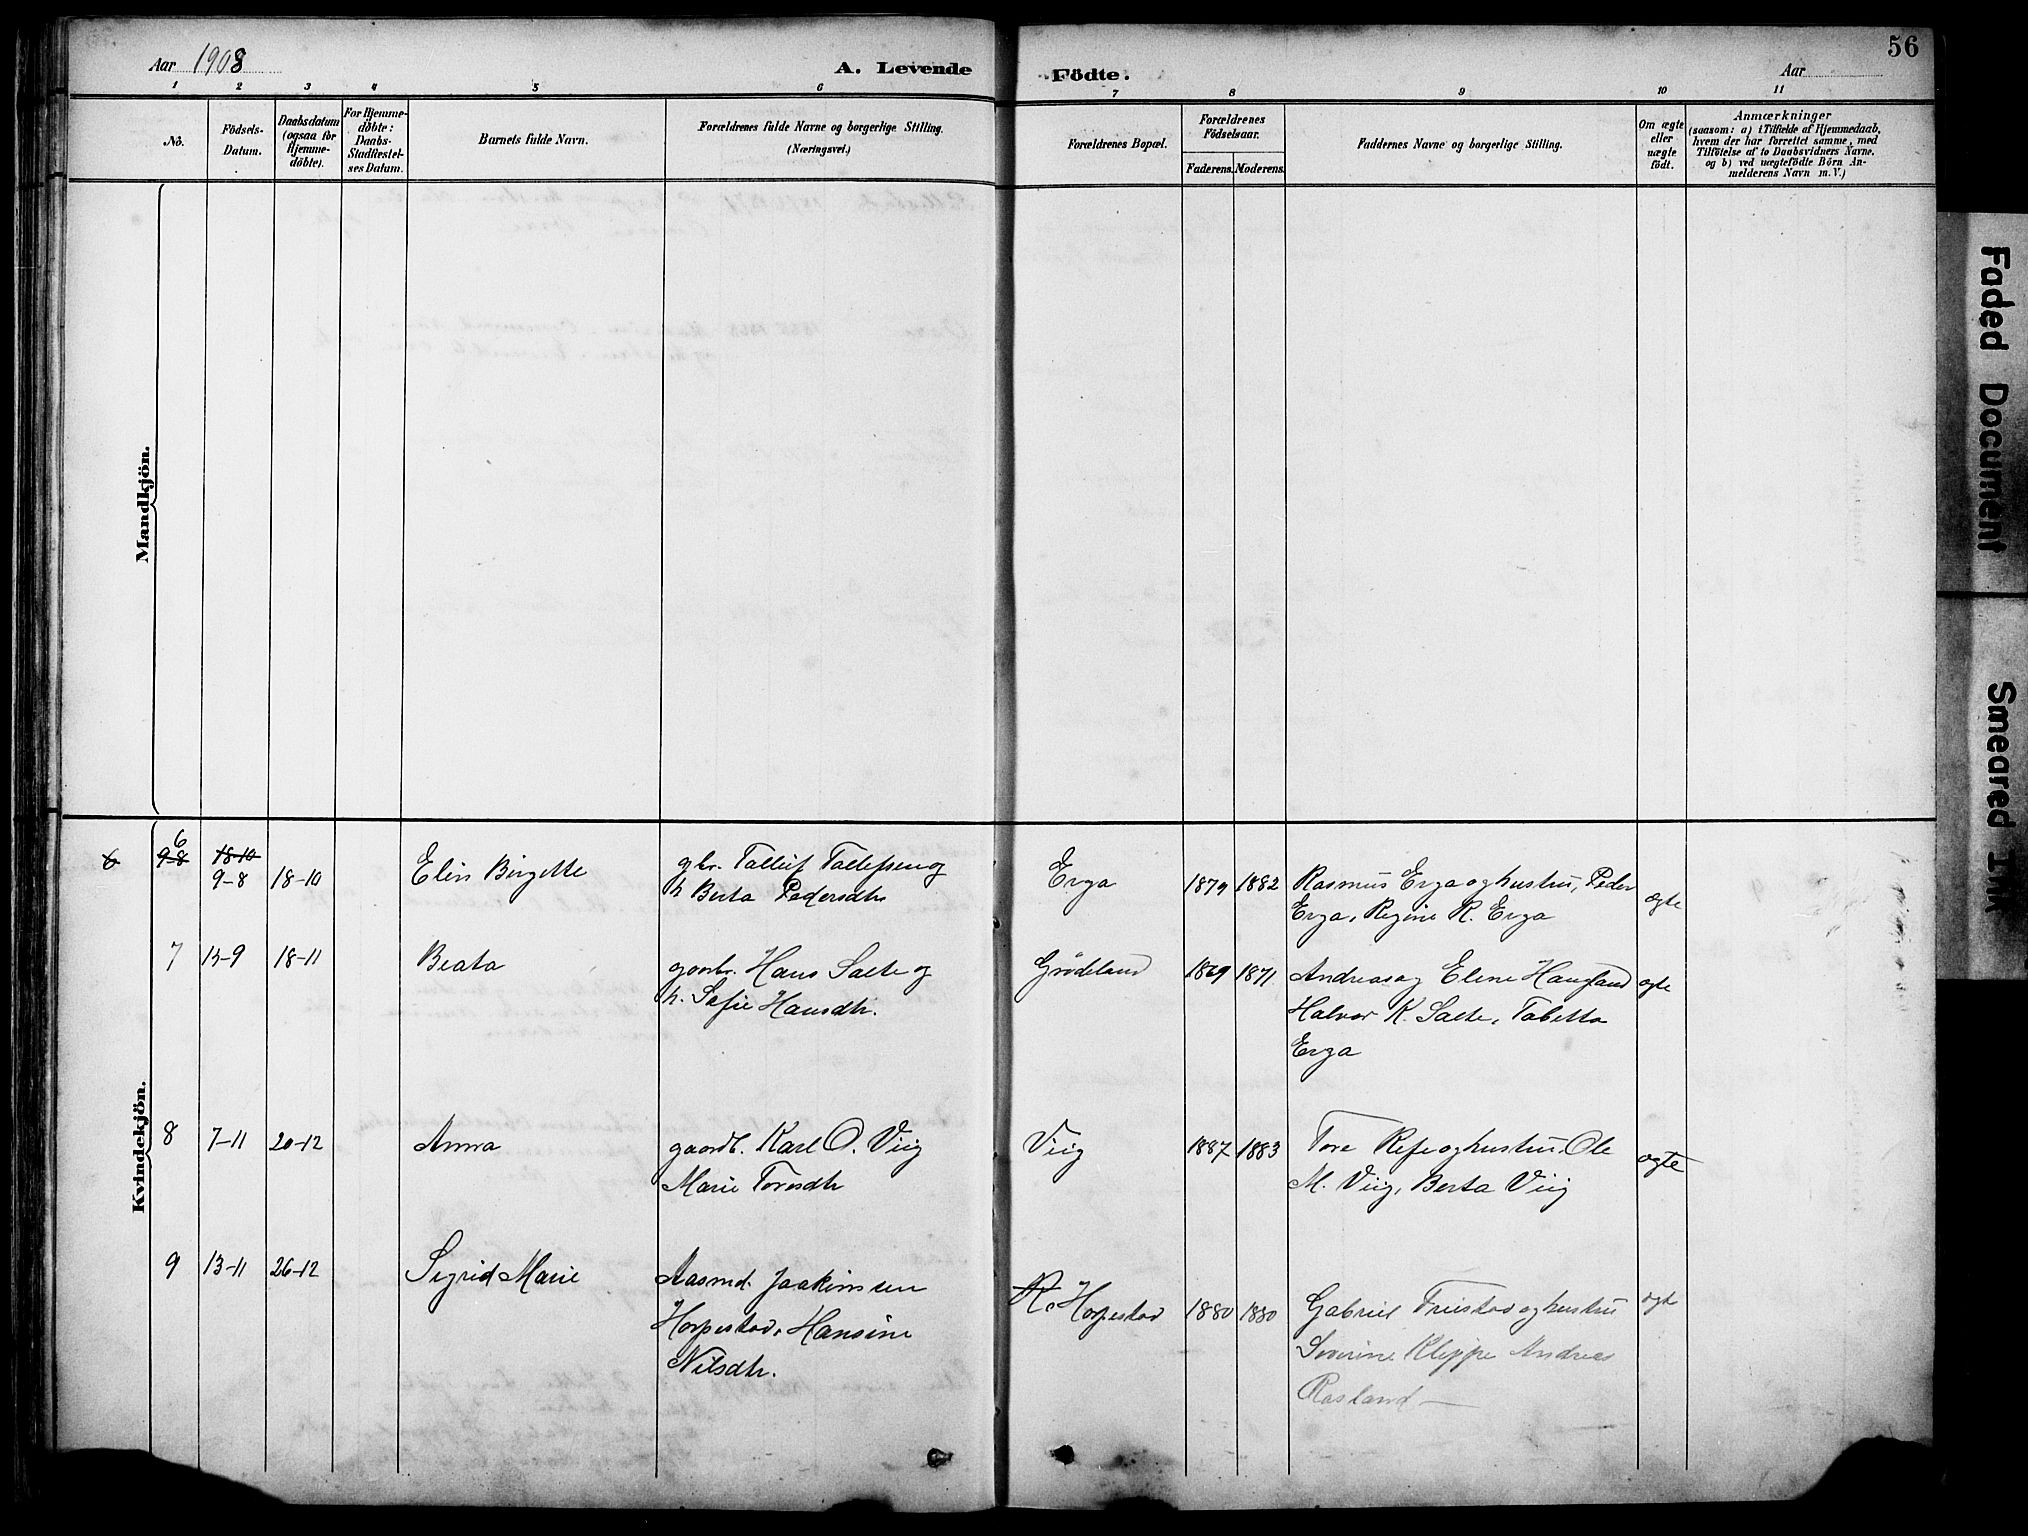 Aar 1908
A. Levende Födte.
Aar
56
1 2 3 4 5 6 7 8 9 10 11
No.
Födsels-
Datum.
Daabsdatum
(ogsaa for
Hjemme-
döbte).
For Hjemme-
döbte:
Daabs-
Stadfestel-
ses Datum.
Barnets fulde Navn.
Forældrenes fulde Navne og borgerlige Stilling.
(Næringsvei.)
Forældrenes Bopæl.
Forældrenes
Födselsaar.
Faderens. Moderens.
Faddernes Navne og borgerlige Stilling.
Om ægte
eller
uægte
födt.
Anmærkninger
(saasom: a) i Tilfælde af Hjemmedaab,
hvem der har forrettet samme, med
Tilföielse af to Daabsvidners Navne.
og b) ved uægtefödte Börn An-
melderens Navn m.V.)
Mandkjön.
Kvindekjön.
6
6 9-8 18-10
9-8 18-10 Elin Birgitte
gbr. Tallef Tallefsen og
h Berta Pedersdtr
Erga 1879 1882
Rasmus Erga og hustru, Peder
Erga, Regine R. Erga
ægte
7 13-9 18-11 Beata
gaardbr. Hans Salte og
h. Sofie Hansdtr.
Grödeland 1869 1871
Andreas og Elene Haugland
Halvor K. Salte, Tabitta
Erga
ægte
8 7-11 20-12 Anna
gaardb. Karl O. Viig
Marie Toresdtr
Viig 1887 1883
Tore Refs og hustru. Ole
M. Viig, Berta Viig
ægte
9 13-11 26-12 Sigrid Marie
Aasmd. Joakimsen
Horpestad, Hansine
Nilsdtr.
R. Horpestad 1880 1880
Gabriel Friestad og hustru
Severine Kleppe Andreas
Rosland
ægt
Faded Document
Smeared Ink